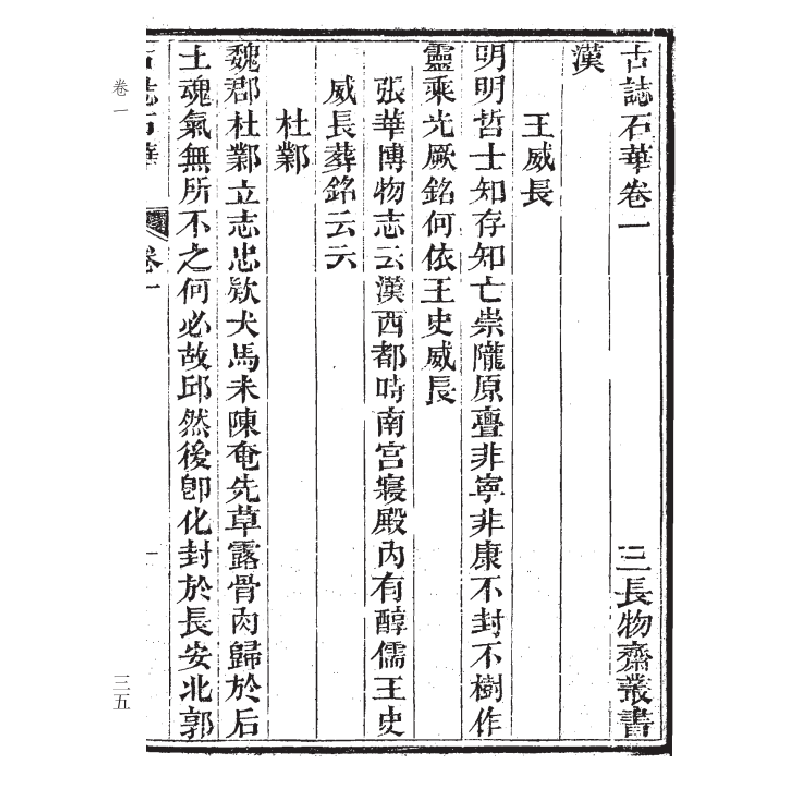 古誌石華卷一 三長物齋叢書
漢
王威長
明明哲士知存知亡崇隴原亹非寧非康不封不樹作
靈乘光厥銘何依王史威長
張華博物志云漢西都時南宫寢殿內有醇儒王史
威長葬銘云云
杜鄴
魏郡杜鄴立志忠欵犬馬未陳奄先草露骨肉歸於后
土魂氣無所不之何必故邱然後卽化封於長安北郭
古誌石華 卷一 一
卷一 三五